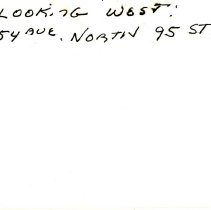 LOOKING WEST.
54 AVE. NORTH 95 ST